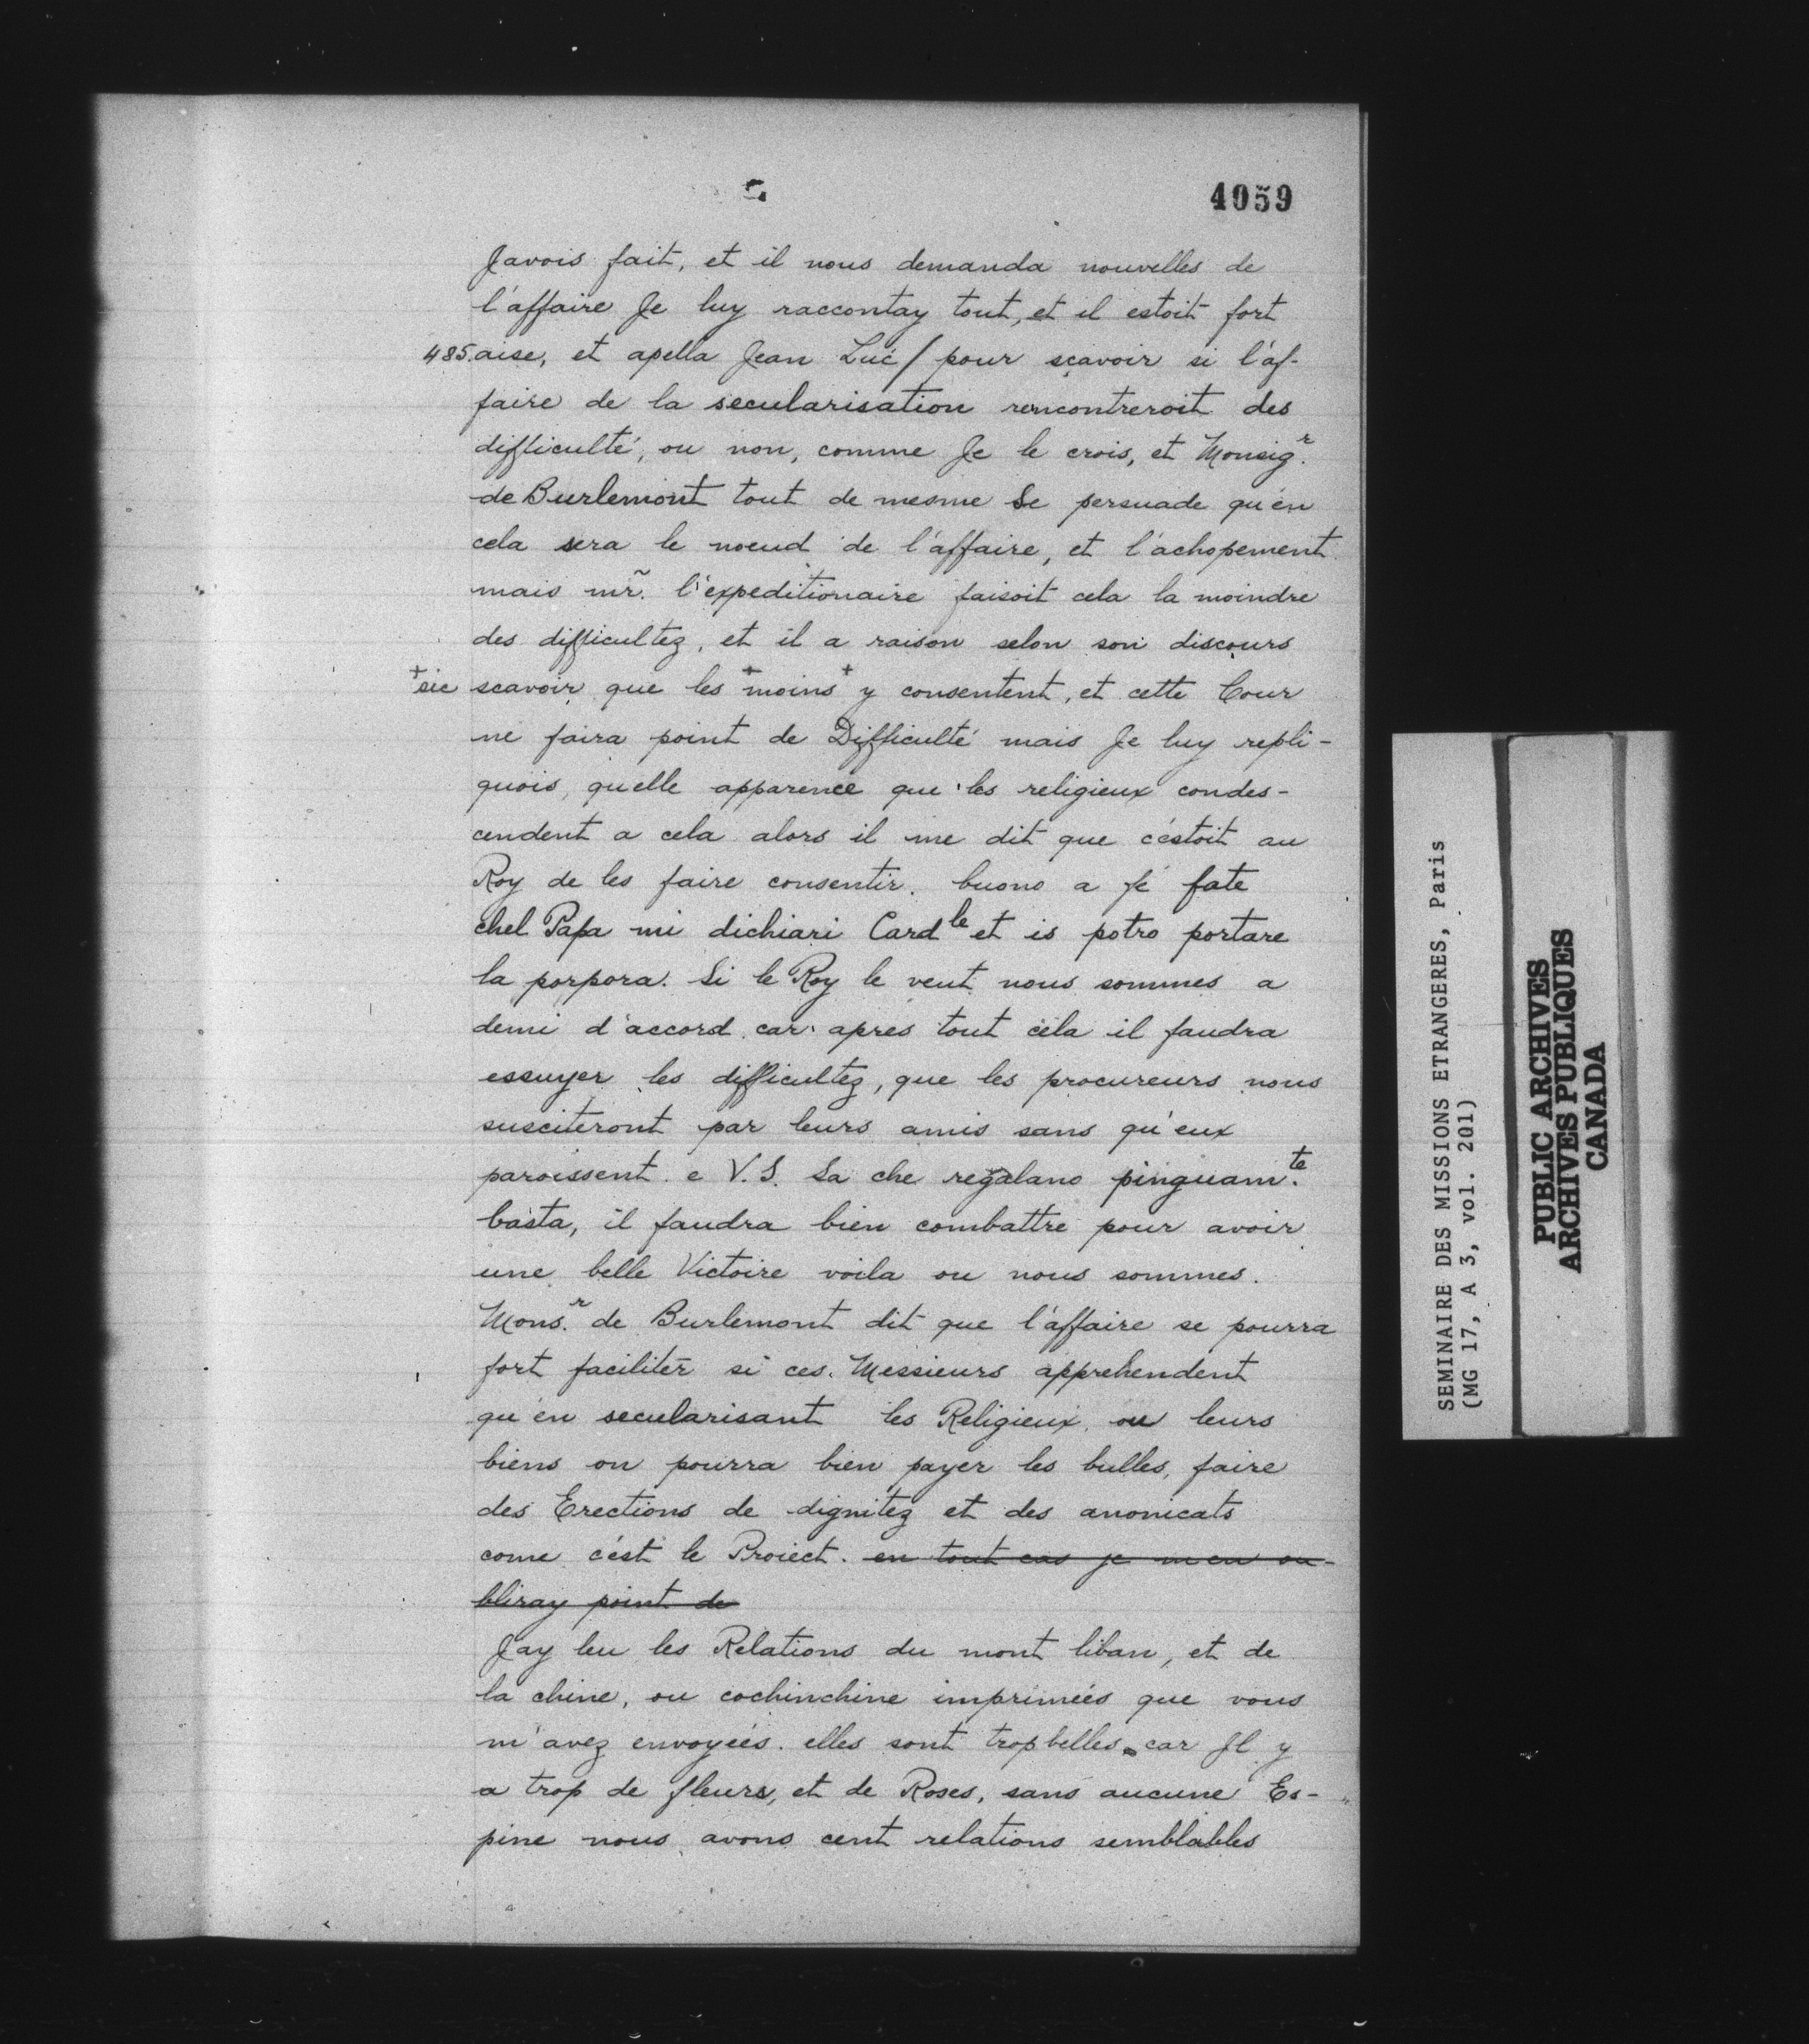 4059
Javois fait, et il nous demanda nouvelles de
l'affaire Je luy raccontay tout, et il estoit fort
485. aise, et apella Jean Luc / pour sçavoir si l'af-
faire de la secularisation rencontreroit des
difficulté, ou non, comme Je le crois, et Monsig.r
de Burlemont tout de mesme Se persuade qu'en
cela sera le noeud de l'affaire, et l'achopement
mais mr̃. l'expeditionaire faisoit cela la moindre
des difficultez, et il a raison selon son discours
+sic scavoir que les +moins+ y consentent, et cette Cour
ne faira point de Difficulté mais Je luy repli-
quois, quelle apparence que les religieux condes-
cendent a cela alors il me dit que c'éstoit au
Roy de les faire consentir. buono a fé fate
chel Papa mi dichiari Cardle et is potro portare
la porpora. Si le Roy le veut nous sommes a
demi d'accord car apres tout cela il faudra
essuyer les difficultez, que les procureurs nous
susciteront par leurs amis sans qu'eux
paroissent. e V. S. Sa che regalano pinguam.te
basta, il faudra bien combattre pour avoir
une belle Victoire voila ou nous sommes.
Mons.r de Burlemont dit que l'affaire se pourra
fort faciliter si ces Messieurs apprehendent
qu'en secularisant les Religieux, ou leurs
biens on pourra bien payer les bulles, faire
des Erections de dignitez et des anonicats
come c'ést le Proiect. en tout cas je m en ou-
bliray point de
Jay leu les Relations du mont liban, et de
la chine, ou cochinchine impriméés que vous
m'avez envoyéés. elles sont trop belles. car Jl y
a trop de fleurs, et de Roses, sans aucune Es-
pine nous avons cent relations semblables
SEMINAIRE DES MISSIONS ETRANGERES, Paris
(MG 17, A 3, vol. 201)
PUBLIC ARCHIVES
ARCHIVES PUBLIQUES
CANADA